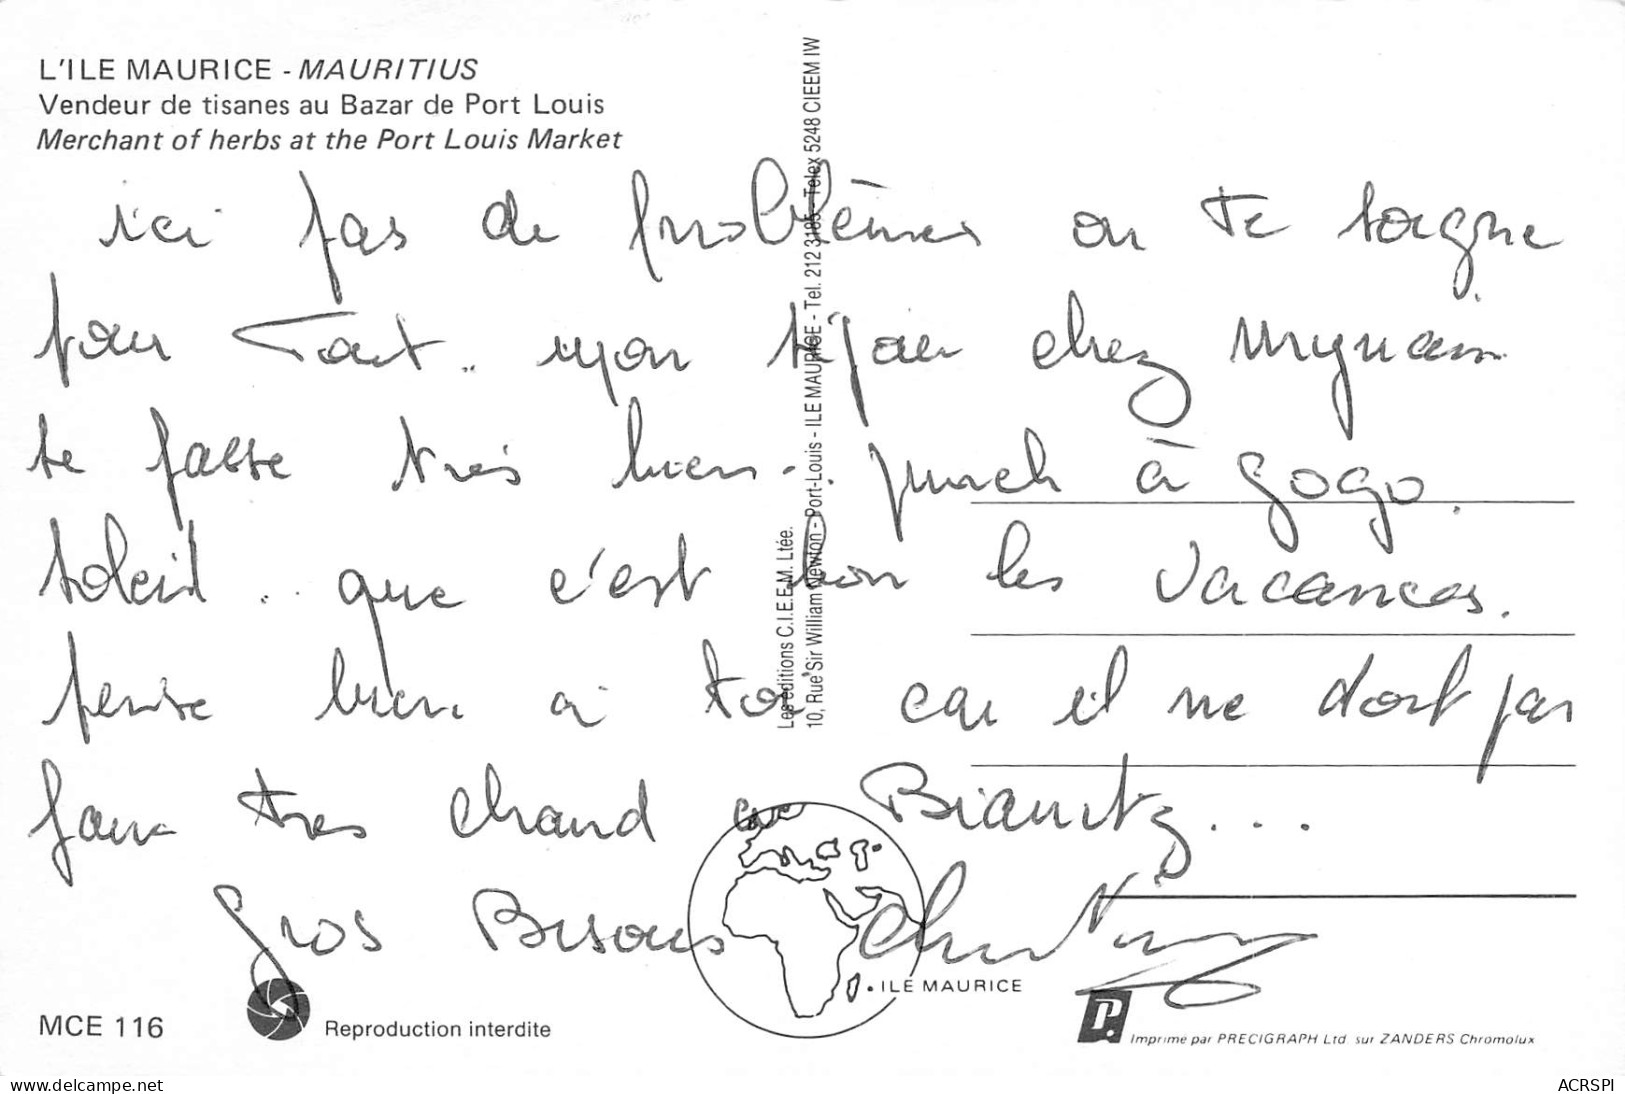 L'ILE MAURICE - MAURITIUS
Vendeur de tisanes au Bazar de Port Louis
Merchant of herbs at the Port Louis Market
ici pas de problèmes on te soigne
pour tout.. mon séjour chez Myriam
se passe très bien. punch à gogo.
soleil.. que c'est bon les vacances.
pense bien à toi car il ne doit pas
faire très chaud a Biarritz...
Gros Bisous
Les éditions C.I.E.E.M. Ltée.
10, Rue Sir William Newton - Port-Louis - ILE MAURICE - Tel. 212 3185 - Telex 5248 CIEEM IW
ILE MAURICE
MCE 116
Reproduction interdite
P.
Imprimé par PRECIGRAPH Ltd sur ZANDERS Chromolux
delcampe.net
ACRSPI